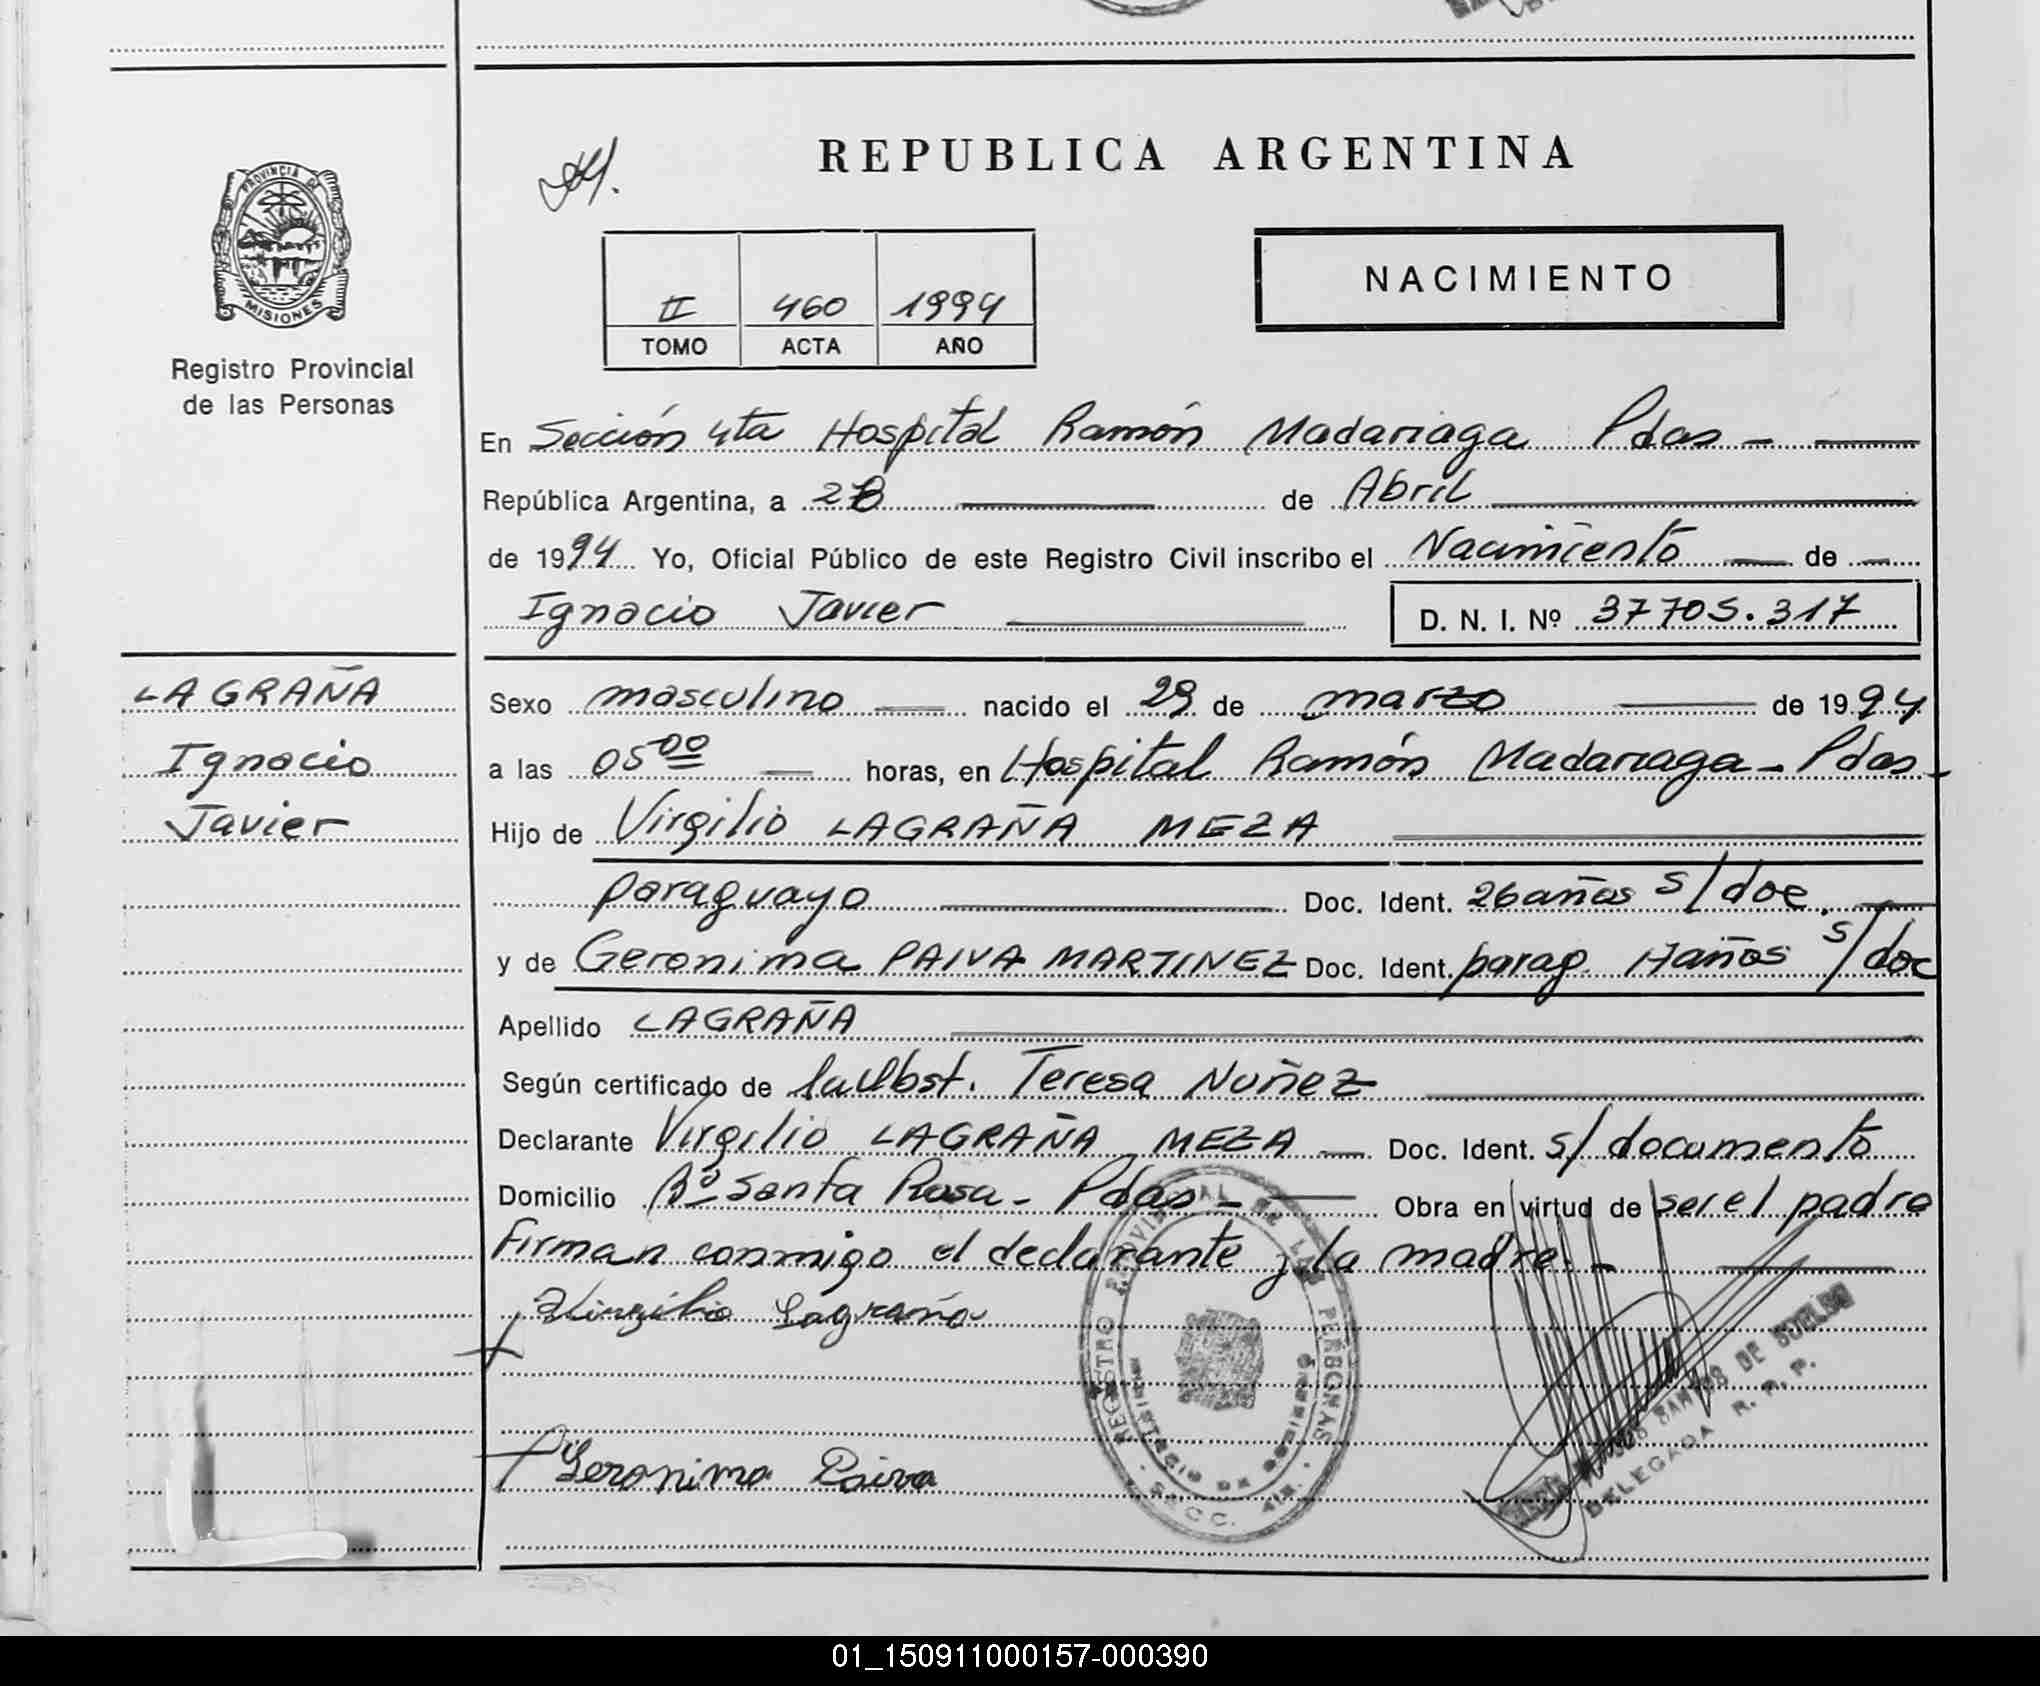 REPUBLICA ARGENTINA
PROVINCIA DE
MISIONES
Registro Provincial
de las Personas
II 460 1994
TOMO ACTA AÑO
NACIMIENTO
En Sección 4ta Hospital Ramón Madariaga Pdas -
República Argentina, a 28 de Abril
de 1994 Yo, Oficial Público de este Registro Civil inscribo el Nacimiento de
Ignacio Javier D. N. I. Nº 37705.317
LAGRAÑA
Ignacio
Javier
Sexo masculino nacido el 29 de marzo de 1994
a las 05 00 horas, en Hospital Ramón Madariaga - Pdas -
Hijo de Virgilio LAGRAÑA MEZA
paraguayo Doc. Ident. 26 años s/doc.
y de Geronima PAIVA MARTINEZ Doc. Ident. parag. años s/doc
Apellido LAGRAÑA
Según certificado de la Obst. Teresa Nuñez
Declarante Virgilio LAGRAÑA MEZA Doc. Ident. s/documento
Domicilio Bº Santa Rosa - Pdas - Obra en virtud de ser el padre
Firman conmigo el declarante y la madre. -
Virgilio Lagraña
Geronima Paiva
REGISTRO PROVINCIAL DE LAS PERSONAS
SECC. 4ta.
SANTOS DE
DELEGADA R. P. P.
01_150911000157-000390